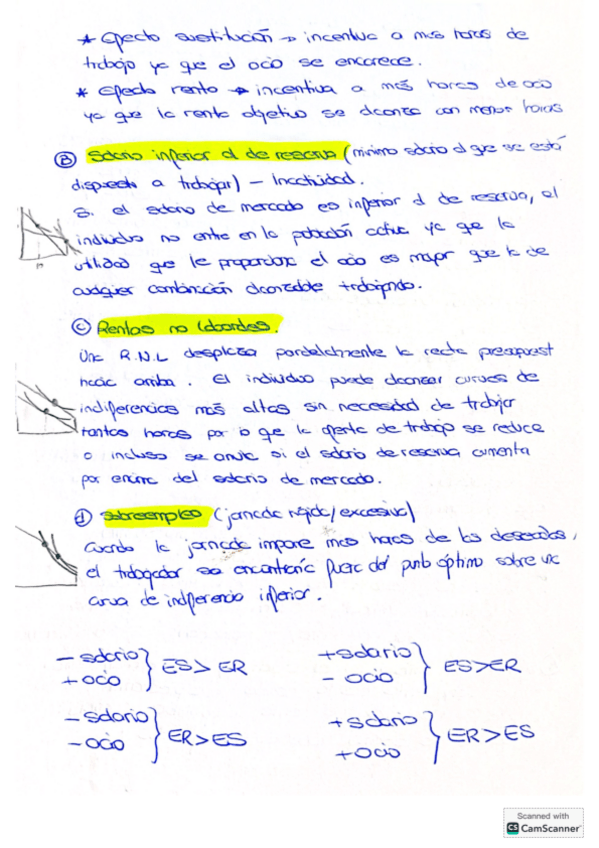 * Efecto sustitución → incentiva a más horas de
trabajo ya que el ocio se encarece.
* Efecto renta → incentiva a más horas de ocio
ya que la renta objetivo se alcanza con menos horas
B Salario inferior al de reserva (mínimo salario al que se está
dispuesto a trabajar) – Inactividad.
Si el salario de mercado es inferior al de reserva, el
individuo no entra en la población activa ya que la
utilidad que le proporciona el ocio es mayor que la de
cualquier combinación alcanzable trabajando.
C Rentas no laborales.
Una R.N.L desplaza paralelamente la recta presupuest
hacia arriba. El individuo puede alcanzar curvas de
indiferencias más altas sin necesidad de trabajar
tantas horas por lo que la oferta de trabajo se reduce
o incluso se anula si el salario de reserva aumenta
por encima del salario de mercado.
d) Sobreempleo (jornada rígida/excesiva)
Cuando la jornada impone más horas de las deseadas,
el trabajador se encontraría fuera del punto óptimo sobre una
curva de indiferencia inferior.
– salario + ocio } ES > ER
+ salario – ocio } ES > ER
– salario – ocio } ER > ES
+ salario + ocio } ER > ES
Scanned with
CS CamScanner